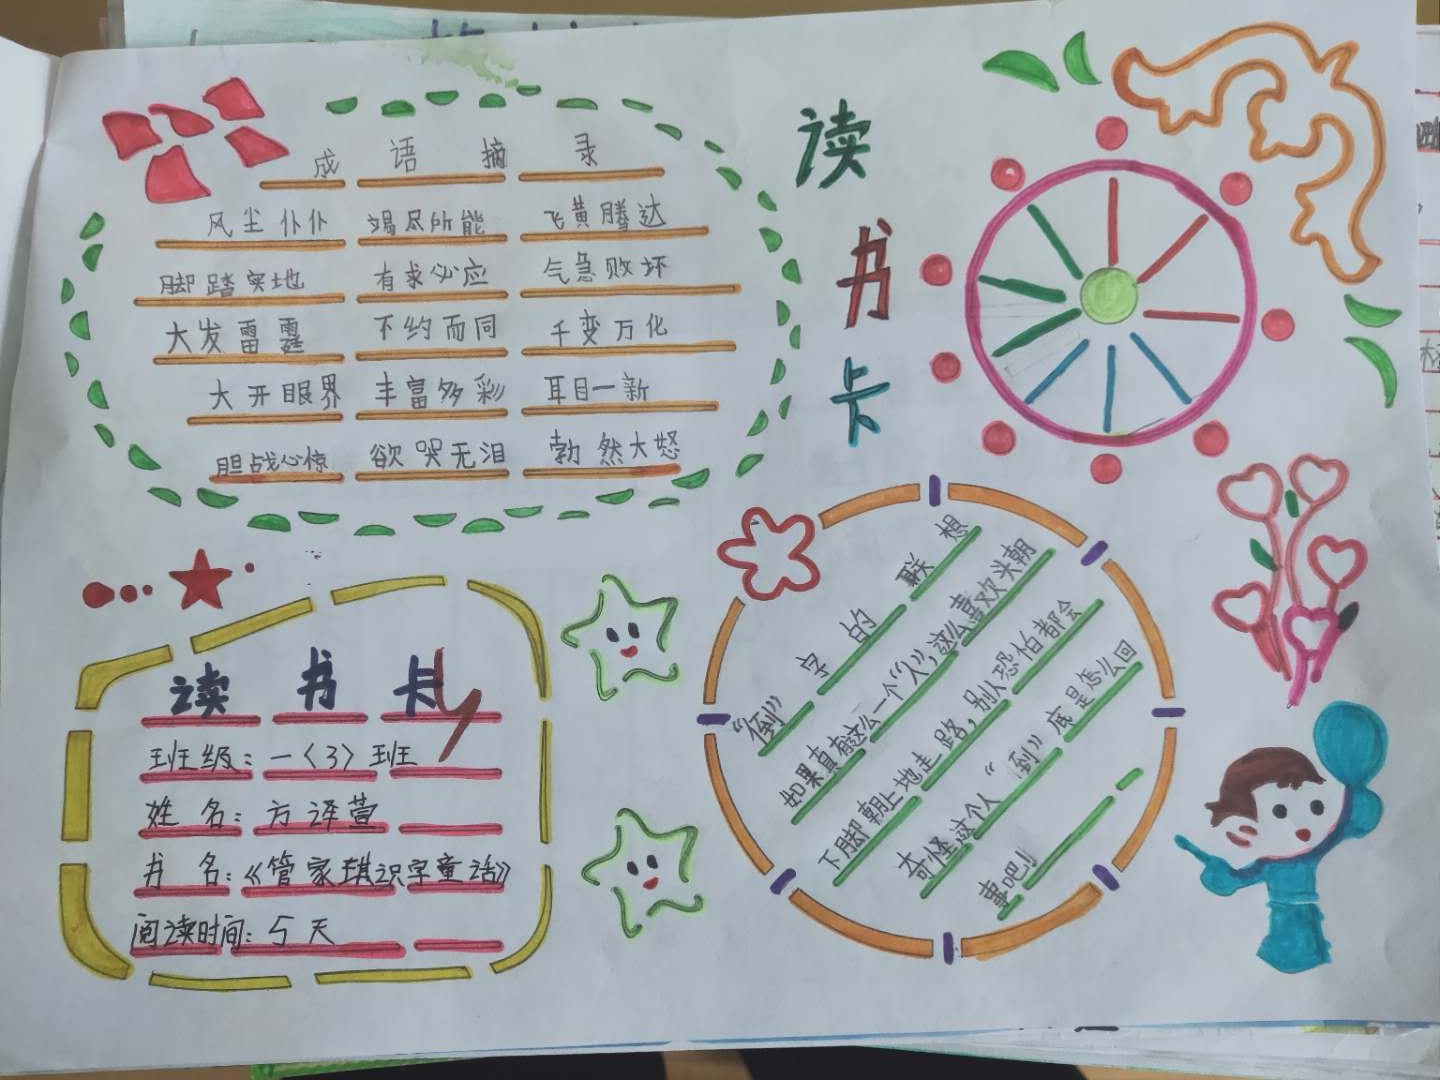 读书卡
成语摘录
风尘仆仆 竭尽所能 飞黄腾达
脚踏实地 有求必应 气急败坏
大发雷霆 不约而同 千变万化
大开眼界 丰富多彩 耳目一新
胆战心惊 欲哭无泪 勃然大怒
读书卡
班级：一〈3〉班
姓名：方译萱
书名：《管家琪识字童话》
阅读时间：5天
“倒”字的联想
如果真有这么一个“人”，这么喜欢头朝
下脚朝上地走路，别人恐怕都会
奇怪这个人“到”底是怎么回
事吧！